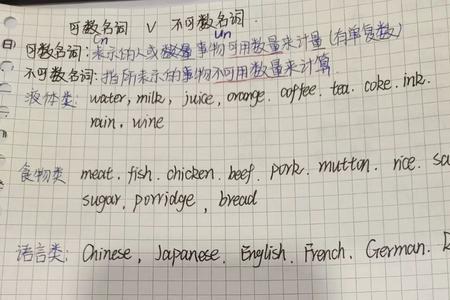 可数名词 V 不可数名词.
Cn Un
可数名词:表示的人或数量事物可用数量来计量(有单复数)
不可数名词:指所表示的事物不可用数量来计算.
液体类: water, milk, juice, orange. coffee. tea. coke. ink.
rain. wine
食物类 meat. fish. chicken. beef. pork. mutton. rice.
sugar. porridge, bread
语言类: Chinese, Japanese. English. French. German.